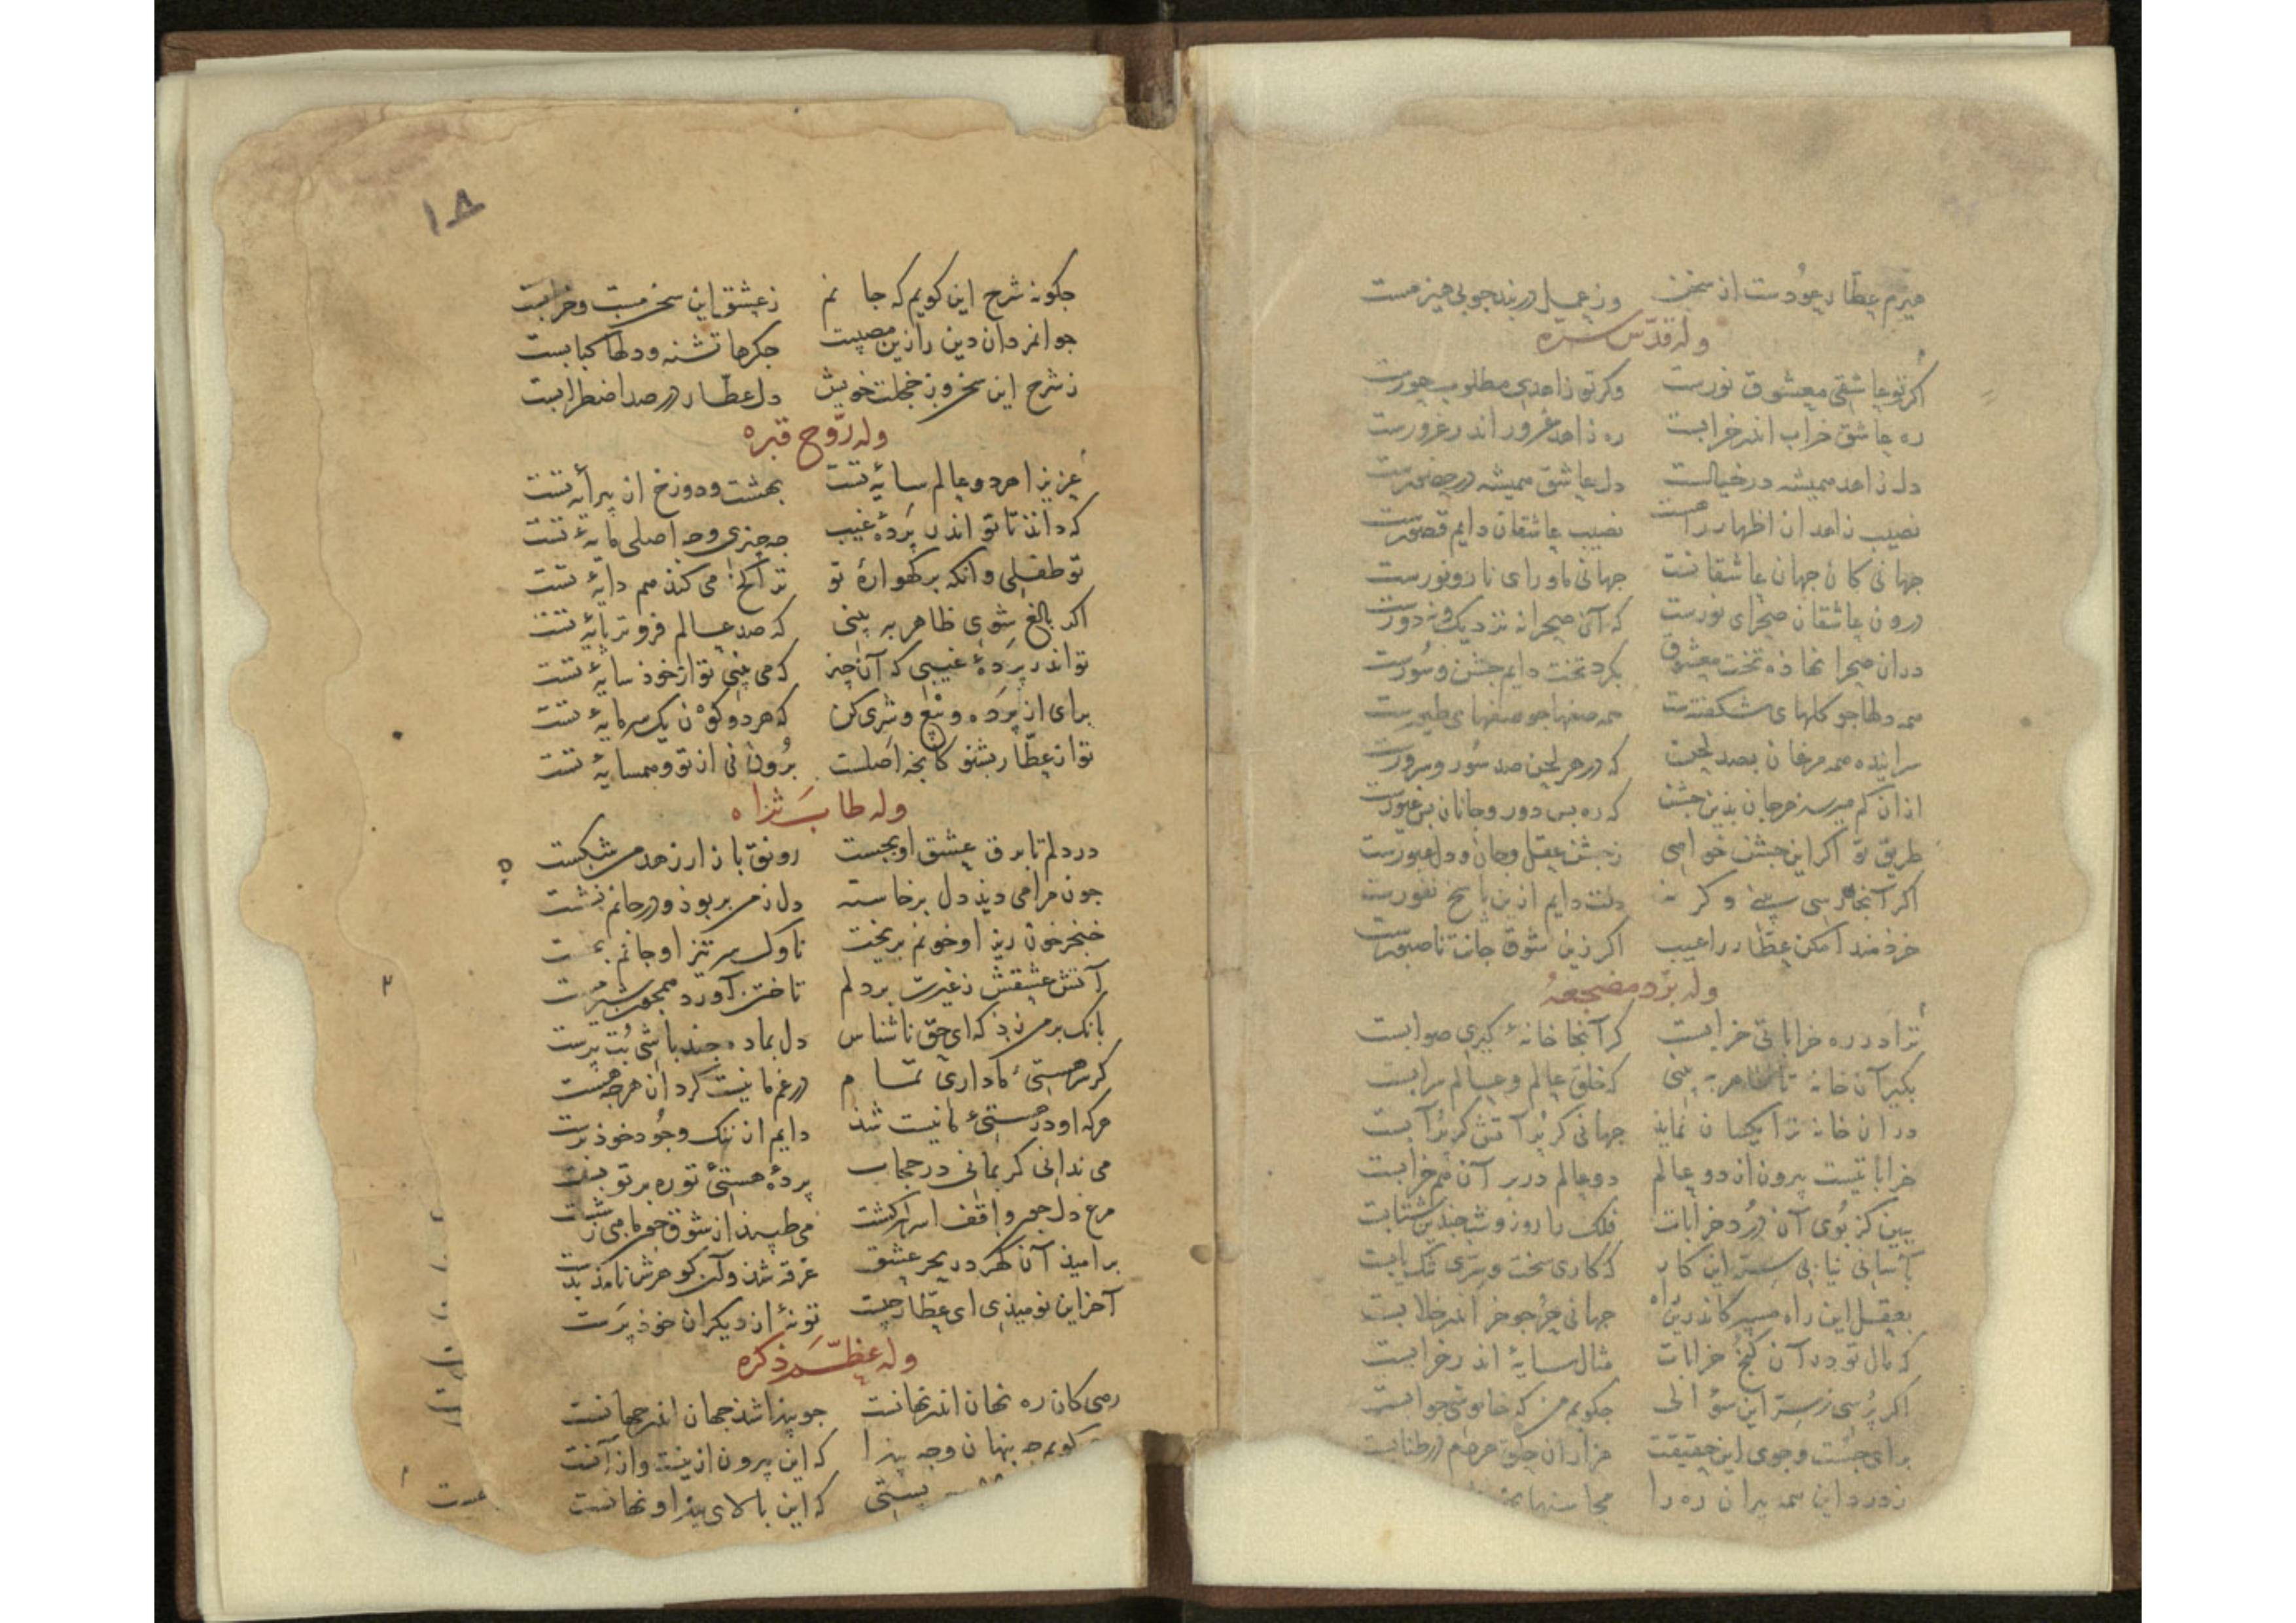 میرم عطار عود است از سخن وز عمل در بند چوبی میزمست
وله قدّس سرّه
اگر تو عاشقی معشوق نورست وگر تو زاهدی مطلوب حورست
ره عاشق خراب اندر خرابست ره زاهد غرور اندر غرورست
دل زاهد همیشه در خیالست دل عاشق همیشه در حضورست
نصیب زاهدان اظهار راهست نصیب عاشقان دایم قصورست
جهانی کان جهان عاشقانست جهانی ماورای نار و نورست
درون عاشقان صحرای نورست که آن صحرا نه نزدیک و نه دورست
در ان صحرا نهاذه تخت معشوق بگرد تخت دایم جشن و سورست
همه دلها چو گلهای شکفتست همه صفها چو صفهای طیورست
سراینده همه مرغان بصد لحن که در هر لحن صد سور و سرورست
ازان کم میرسد هر جان بذین جشن که ره بس دور و جانان بس غیورست
طریق تو اگر این جشن خواهی ز جشن عقل و جان و دل عبورست
اگر آنجا رسی بینی وگر نه دلت دایم ازین پاسخ نفورست
خرذمندا مکن عطار را عیب اگر زین شوق جانت ناصبورست
وله برّد مضجعهُ
ترا در ره خراباتی خرابست گر آنجا خانهٔ گیری صوابست
بگیر آن خانه تا ظاهر به بینی که خلق عالم و عالم سرابست
در ان خانه ترا یکسان نماید جهانی گر پُر آتش گر پُر آبست
خراباتیست بیرون از دو عالم دو عالم در بر آن هم خرابست
ببین کز بُوی آن دُرد خرابات فلک را روز و شب چندین شتابست
بآسانی نیابی سرّ این کار که کاری سخت و سرّی تنگ یابست
بعقل این راه مسپر کاندرین راه جهانی خر چو خر اندر خلابست
که مال تو در آن کنج خرابات مثال سایهٔ اندر خرابست
اگر پُرسی ز سرّ این سؤالی چگویم من که خاموشی جوابست
برای جُست و جوی این حقیقت هزاران حلق مردم در طنابست
ز درد این همه پیران ره را محاسنها
۱۸
چگونه شرح این گویم که جانم ز عشق این سخن مست و خرابست
جوانمردان دین را زین مصیبت جگرها تشنه و دلها کبابست
ز شرح این سخن وز خجلت خویش دل عطّار در صد اضطرابست
وله روّح قبره
عزیزا هر دو عالم سایهٔ تست بهشت و دوزخ از پیرایهٔ تست
که داند تا تو اندر پردهٔ غیب چه چیزی و چه اصلی مایهٔ تست
تو طفلی وانکه بر گهوارهٔ تو ترا کج می کند هم دایهٔ تست
اگر بالغ شوی ظاهر به بینی که صد عالم فروتر پایهٔ تست
تو اندر پردهٔ غیبی که آن چیز که می بینی تو از خوذ سایهٔ تست
برای از پرده و بیع و شری کن که هر دو کون یک سرمایهٔ تست
تو از عطّار بشنو کانچه اصلست بُرون نی از تو و همسایهٔ تست
وله طاب ثراه
در دلم تا برق عشق او بجست رونق بازار زهد من شکست
چون مرا می دید دل برخاسته دل ز من بربوذ و در جانم نشست
خنجر خون ریز او خونم بریخت ناوک سر تیز او جانم بخست
آتش عشقش ز غیرت بر دلم تاختن آورد همچون شیر مست
بانگ بر من زذ که ای حق ناشناس دل بما ده چند باشی بُت پرست
گر سر هستیٔ ما داری تمام در غم ما نیست گرد از هرچ هست
هرکه او در هستیٔ ما نیست شد دایم از ننگ وجُود خوذ برست
می ندانی کز بمانی در حجاب پردهٔ هستیٔ تو ره بر تو بست
مرغ دل چو واقف اسرار گشت می طپید از شوق چون ماهی ز شست
بر امیذ آن گهر در بحر عشق غرقه شد وآن گوهرش نامذ بدست
آخر این نومیذی ای عطّار چیست تو نهٔ از دیگران خوذ پرست
وله عظّم ذکره
رهی کان ره نهان اندر نهانست چو پیدا شد جهان اندر جهانست
گویم چه پنهان و چه پیدا که این بیرون ازینست و از آنست
پستی که این بالای پیدا و نهانست